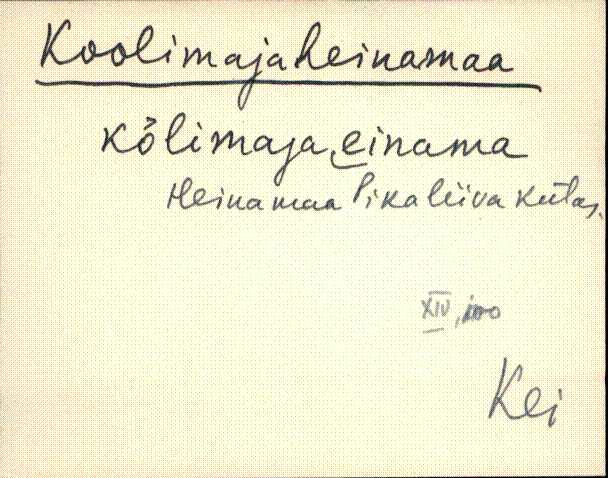 Koolimajaheinamaa
kȭlimaja‿einama
Heinamaa Pikaliiva külas.
XIV,
Kei